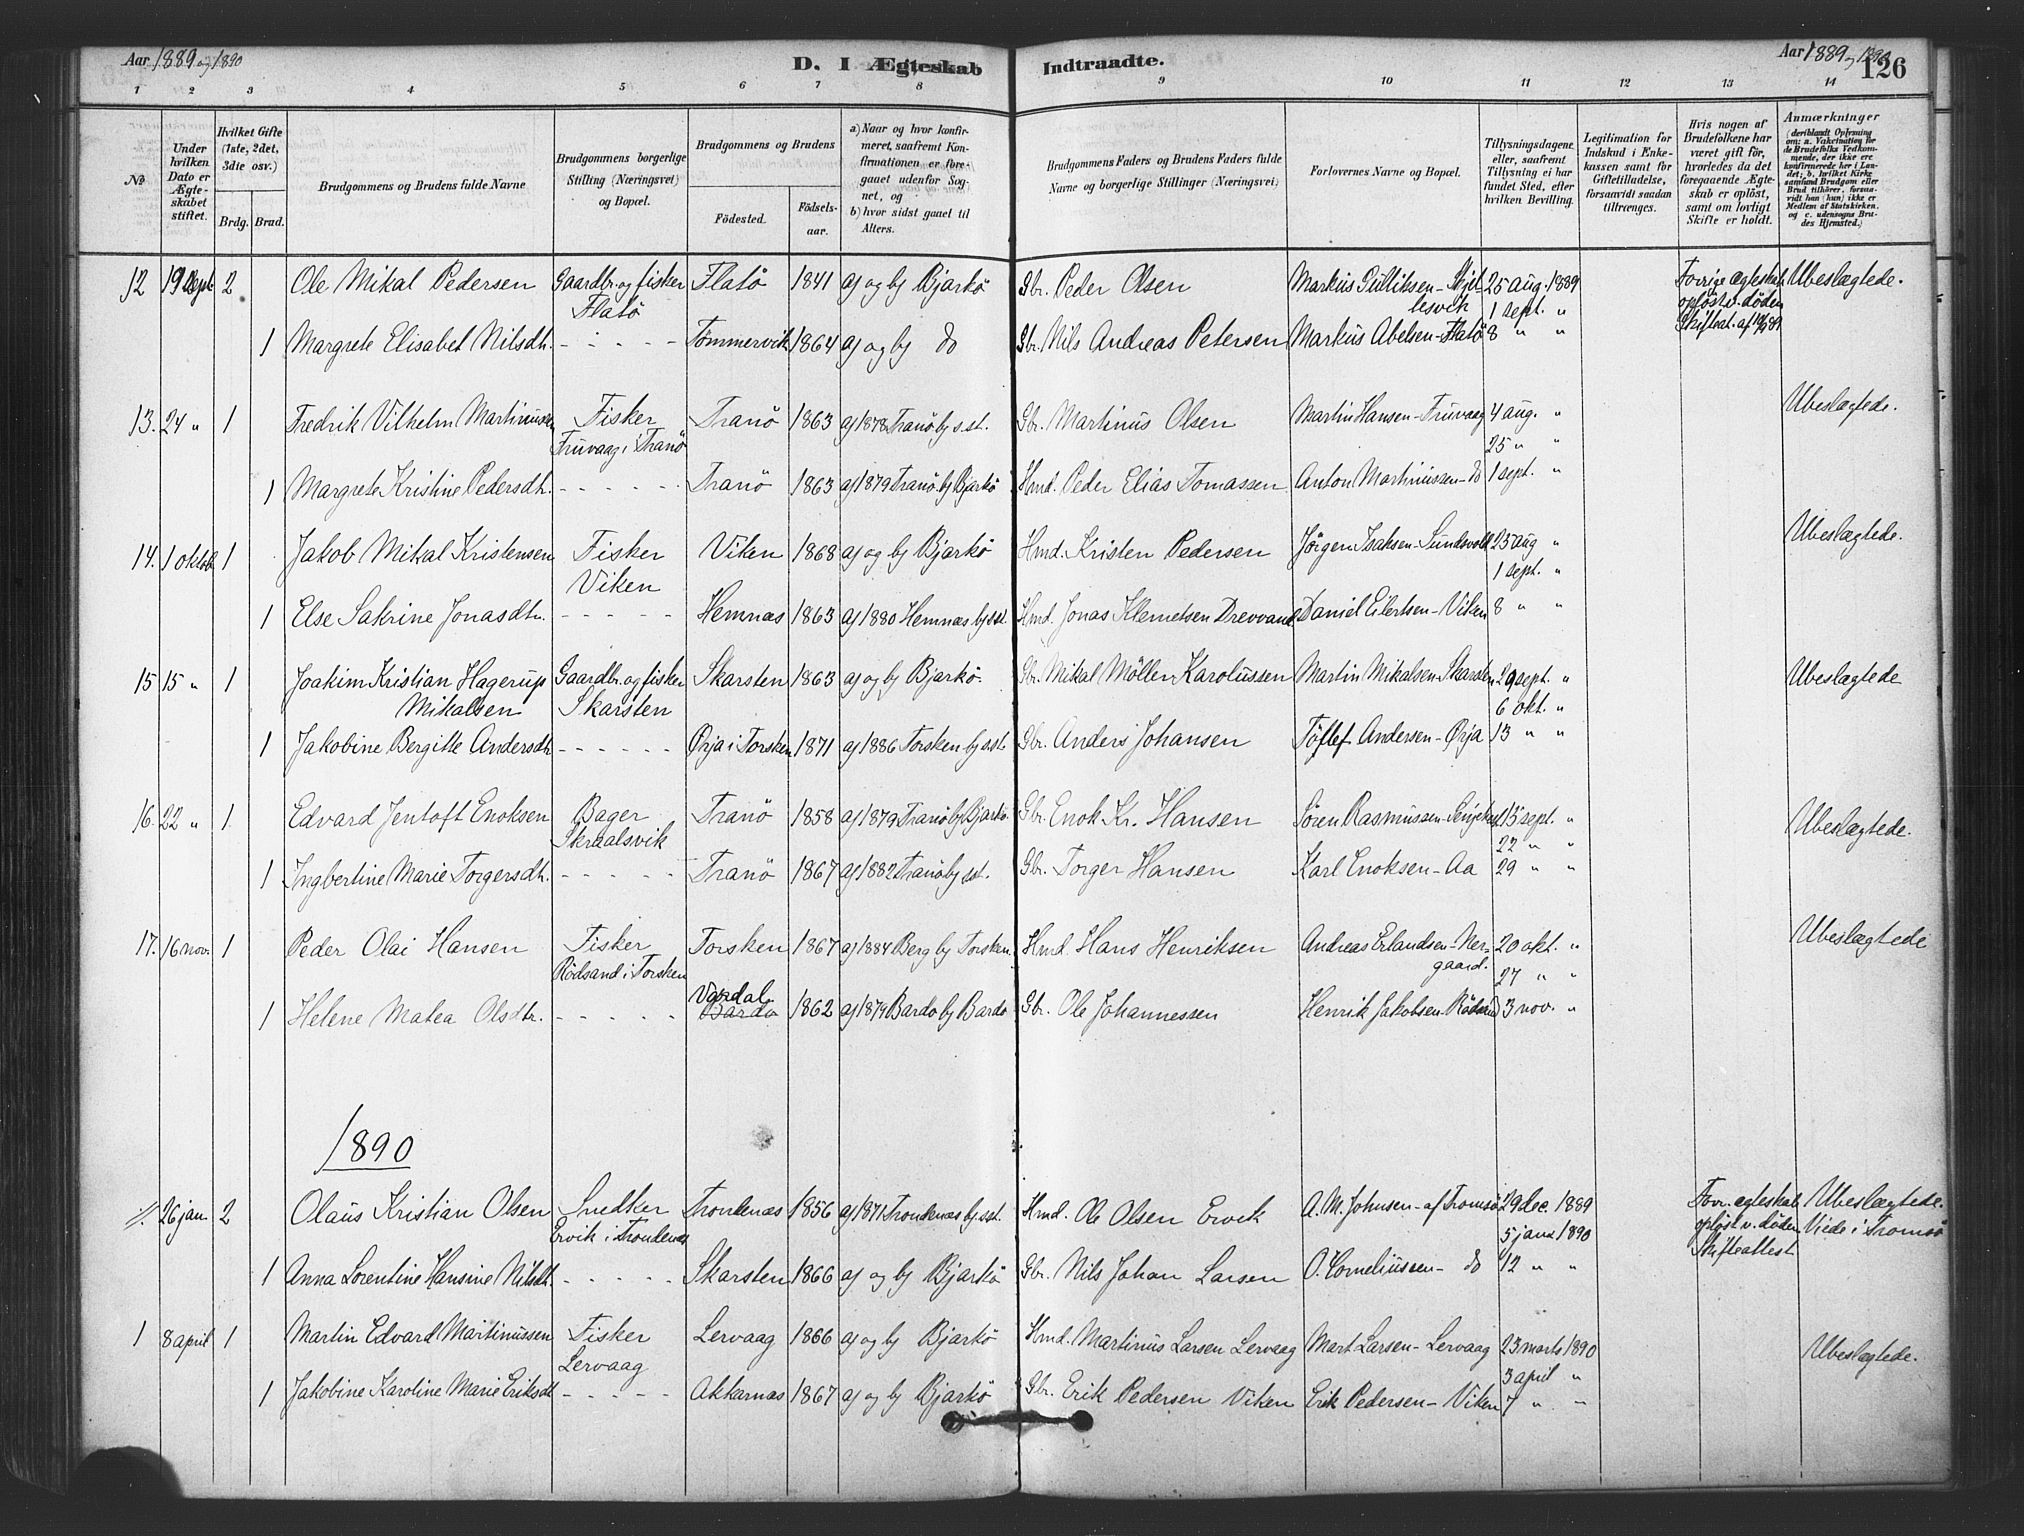 Aar 1889 og 1890 D. I Ægteskab Indtraadte. Aar 1889 og 1890 126
1 2 3 4 5 6 7 8 9 10 11 12 13 14
No
Under hvilken Dato er Ægteskabet stiftet.
Hvilket Gifte (1ste, 2det, 3die osv.)
Brdg. Brud.
Brudgommens og Brudens fulde Navne
Brudgommens borgerlige Stilling (Næringsvei) og Bopæl.
Brudgommens og Brudens
Födested. Födsels-aar.
a) Naar og hvor konfirmeret, saafremt Konfirmationen er foregaaet udenfor Sognet, og
b) hvor sidst gaaet til Alters.
Brudgommens Faders og Brudens Faders fulde Navne og borgerlige Stillinger (Næringsvei)
Forlovernes Navne og Bopæl.
Tillysningsdagene eller, saafremt Tillysning ei har fundet Sted, efter hvilken Bevilling.
Legitimation for Indskud i Enkekassen samt for Giftetilladelse, forsaavidt saadan tiltrænges.
Hvis nogen af Brudefolkene har været gift før, hvorledes da det foregaaende Ægteskab er oplöst, samt om lovligt Skifte er holdt.
Anmærkninger
(deriblandt Oplysning om: a. Vakcination for de Brudefolks Vedkommende, der ikke ere konfirmerede her i Landet; b. hvilket Kirkesamfund Brudgom eller Brud tilhører, forsaavidt han (hun) ikke er Medlem af Statskirken, og c. udensogns Brudes Hjemsted.)
12 19 Sept. 2 Ole Mikal Pedersen Gaardbr. og fisker Flatö 1841 a) og b) Bjarkö Gbr. Peder Olsen Markus Gulliksen- 25 aug. 1889 Forrige ægteskab Ubeslægtede.
Flatö lesvik 1 sept. „ opløst v. døden
1 Margrete Elisabet Nilsdh. - - - - - Tömmervik 1864 a) og b) do Gbr. Nils Andreas Petersen Markus Abelsen-Flatö 8 „ „ Skifteat. af
13. 24 „ 1 Fredrik Vilhelm Martinussen Fisker Tranö 1863 a) 1878 Tranö b) s.st. Gbr. Martinus Olsen Martin Hansen-Truvaag 4 aug. „ Ubeslægtede.
Truvaag i Tranö 25 „ „
1 Margrete Kristine Pedersdh. - - - - - - Tranö 1863 a) 1879 Tranö b) Bjarkö Hmd. Peder Elias Tomassen Anton Martinussen-do 1 sept. „
14. 1 oktob. 1 Jakob Mikal Kristensen Fisker Viken 1868 a) og b) Bjarkö Hmd. Kristen Pedersen Jörgen Isaksen-Sundsvold 25 aug „ Ubeslægtede.
Viken 1 sept. „
1 Else Sakrine Jonasdtr. - - - - - - Hemnæs 1863 a) 1880 Hemnæs b) s.st. Hmd. Jonas Klemetsen Drevvand Daniel Eilertsen-Viken 8 „ „
15 15 „ 1 Joakim Kristian Hagerup Gaardbr. og fisker Skarsten 1863 a) og b) Bjarkö. Gbr. Mikal Möller Karolussen Martin Mikalsen-Skarsten 29 sept. „ Ubeslægtede
Mikalsen Skarsten 6 okt. „
1 Jakobine Bergitte Andersdtr - - - - - - Örja i Torsken 1871 a) 1886 Torsken b) s.st. Gbr. Anders Johansen Töllef Andersen-Örja 13 „ „
16. 22 „ 1. Edvard Jentoft Enoksen Bager Tranö 1858 a) 1879 Tranö b) Bjarkö Gbr. Enok Kr. Hansen Sören Rasmussen- 15 sept. „ Ubeslægtede.
Skraalsvik 22 „ „
1 Ingbertine Marie Torgersdh. - - - - - Tranö 1867 a) 1882 Tranö b) s.st. Gbr. Torger Hansen Karl Enoksen-Aa 29 „ „
17. 16 nov. 1 Peder Olai Hansen Fisker Torsken 1867 a) 1884 Berg b) Torsken. Hmd. Hans Henriksen Andreas Erlandsen-Ner- 20 okt. „ Ubeslægtede
Rödsand i Torsken gaard. 27 „ „
Vardal
1 Helene Matea Olsdtr. - - - - - Bardo 1862 a) 1879 Bardo b) Bardo Gbr. Ole Johannessen Henrik Jakobsen-Rödsand 3 nov. „
1890
26 jan. 2 Olaus Kristian Olsen Snedker Trondenæs 1856 a) 1871 Trondenæs b) s.st. Hmd. Ole Olsen Ervik A. M. Johnsen-af Tromsö 29 dec. 1889 Forr. ægteskab Ubeslægtede.
Ervik i Trondenæs 5 janr 1890 opløst v. döden Viede i Tromsö
1 Anna Lorentine Hansine Nilsdtr. - - - - - Skarsten 1866 a) og b) Bjarkö Gbr. Nils Johan Larsen O. Corneliussen- do 12 „ „ Skifteattest
1 8 april 1 Martin Edvard Martinussen Fisker Lervaag 1866 a) og b) Bjarkö Hmd. Martinus Larsen Lervaag Mart Larsen-Lervaag 23 marts 1890 Ubeslægtede.
Lervaag 3 april „
1 Jakobine Karoline Marie Eriksdt - - - - - Akkarnæs 1867 a) og b) Bjarkö Gbr. Erik Pedersen Viken Erik Pedersen-Viken 7 „ „